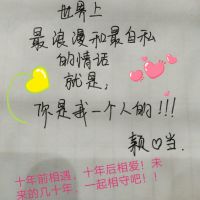 世界上
最浪漫和最自私
的情话
就是,
你是我一个人的!!!
颖♡当.
十年前相遇,十年后相爱!未
来的几十年,一起相守吧!!